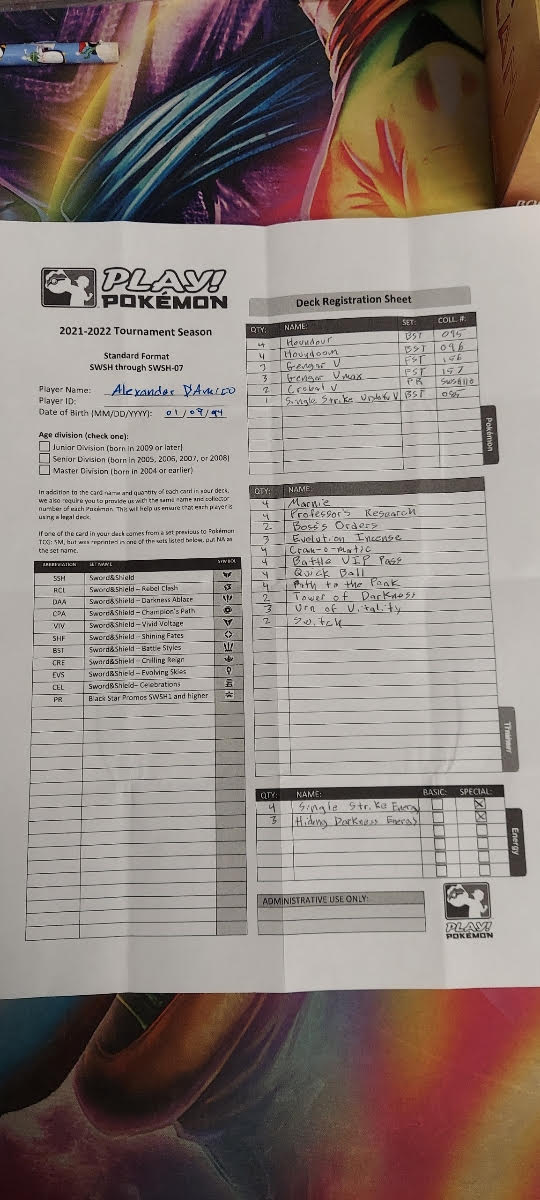 PLAY!
POKÉMON
Deck Registration Sheet
2021-2022 Tournament Season
Standard Format
SWSH through SWSH-07
Player Name: Alexander D'Amico
Player ID:
Date of Birth (MM/DD/YYYY): 01/09/94
Age division (check one):
Junior Division (born in 2009 or later)
Senior Division (born in 2005, 2006, 2007, or 2008)
Master Division (born in 2004 or earlier)
In addition to the card name and quantity of each card in your deck,
we also require you to provide us with the same name and collector
number of each Pokémon. This will help us ensure that each player is
using a legal deck.
If one of the card in your deck comes from a set previous to Pokémon
TCG: SM, but was reprinted in one of the sets listed below, put NA as
the set name.
ABBREVIATION SET NAME SYMBOL
SSH Sword&Shield
RCL Sword&Shield – Rebel Clash
DAA Sword&Shield – Darkness Ablaze
CPA Sword&Shield – Champion's Path
VIV Sword&Shield – Vivid Voltage
SHF Sword&Shield – Shining Fates
BST Sword&Shield – Battle Styles
CRE Sword&Shield – Chilling Reign
EVS Sword&Shield – Evolving Skies
CEL Sword&Shield– Celebrations
PR Black Star Promos SWSH1 and higher
QTY: NAME: SET: COLL. #:
4 Houndour BST 095
4 Houndoom BST 096
3 Gengar V FST 156
3 Gengar Vmax FST 157
2 Crobat V PR SWSH110
1 Single Strike Urshifu V BST 085
Pokémon
QTY: NAME:
4 Marnie
4 Professor's Research
2 Boss's Orders
3 Evolution Incense
4 Cram-o-matic
4 Battle VIP Pass
4 Quick Ball
4 Path to the Peak
2 Tower of Darkness
3 Urn of Vitality
2 Switch
Trainer
QTY: NAME: BASIC: SPECIAL:
4 Single Strike Energy
3 Hiding Darkness Energy
Energy
ADMINISTRATIVE USE ONLY:
PLAY!
POKÉMON